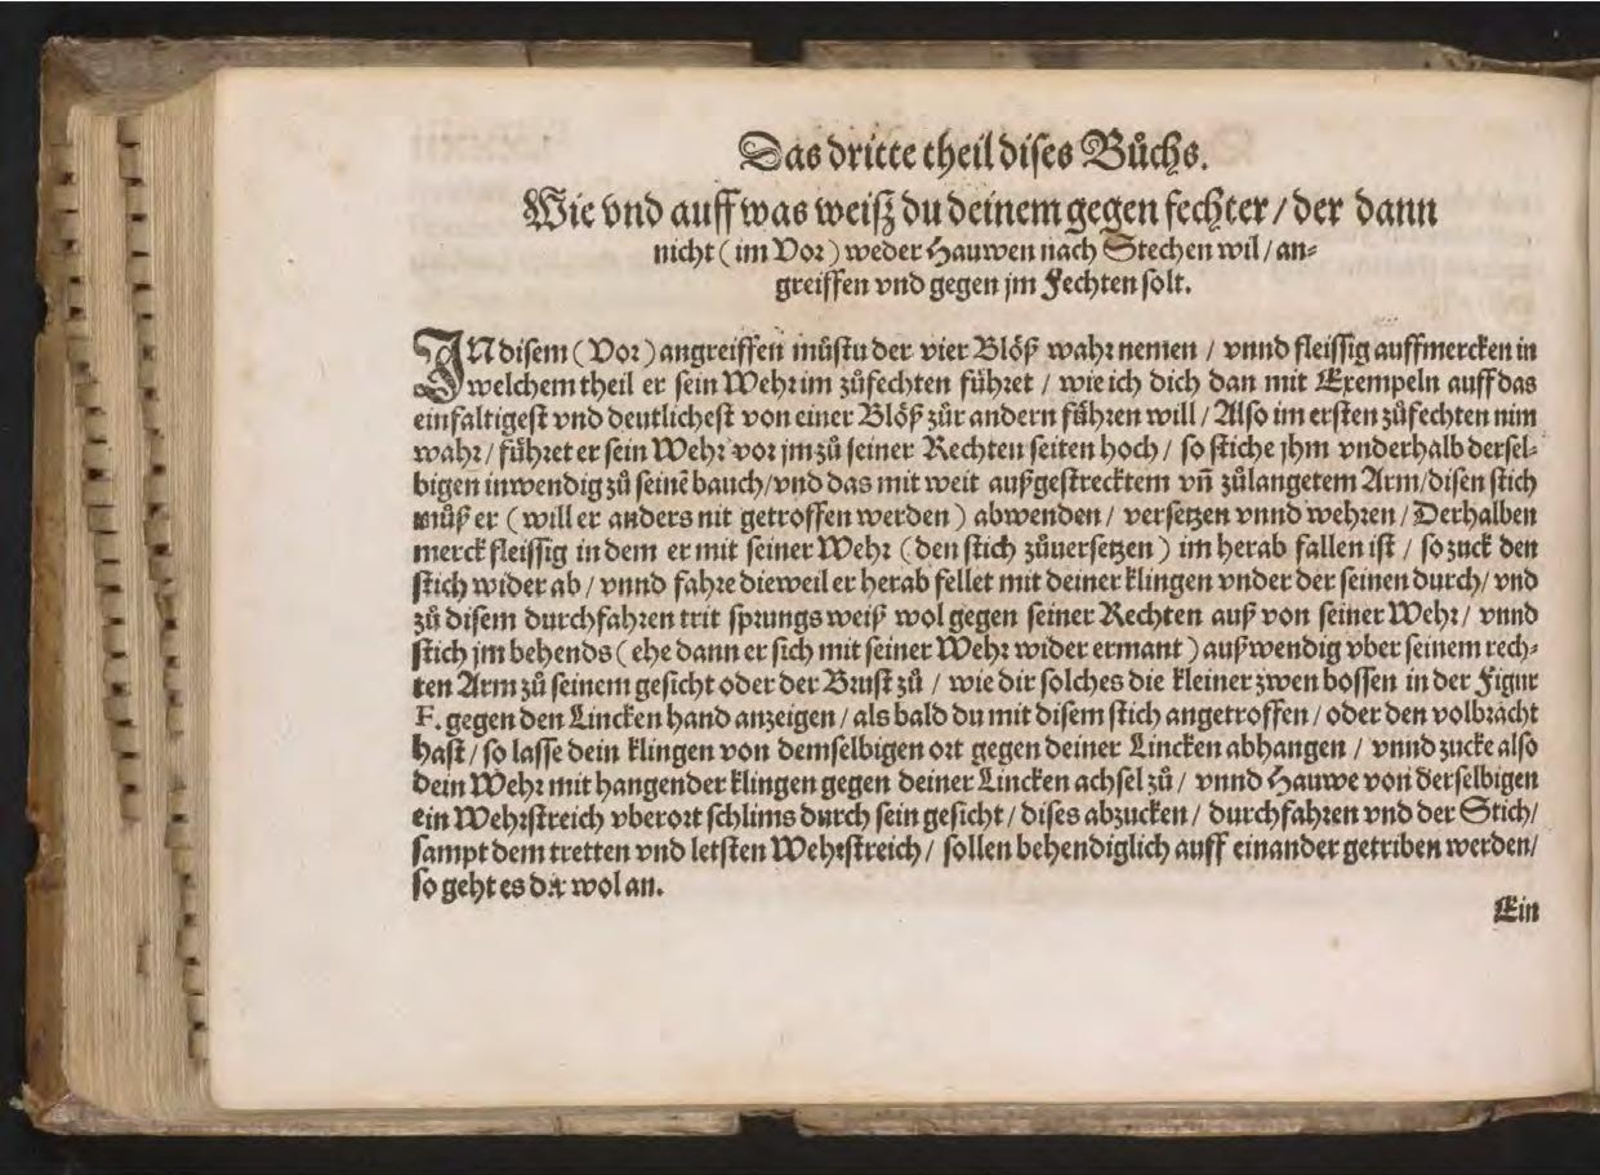 Das dritte theil dises Bůchs.
Wie vnd auff was weiß du deinem gegen fechter / der dann
nicht ( im Vor ) weder Hauwen nach Stechen wil / an⸗
greiffen vnd gegen jm Fechten solt.
IN disem ( Vor ) angreiffen můstu der vier Blöß wahr nemen / vnnd fleissig auffmercken in
welchem theil er sein Wehr im zůfechten führet / wie ich dich dan mit Exempeln auff das
einfaltigest vnd deutlichest von einer Blöß zůr andern führen will / Also im ersten zůfechten nim
wahr / führet er sein Wehr vor jm zů seiner Rechten seiten hoch / so stiche jhm vnderhalb dersel⸗
bigen inwendig zů seinẽ bauch / vnd das mit weit außgestrecktem vñ zůlangetem Arm / disen stich
můß er ( will er anders nit getroffen werden ) abwenden / versetzen vnnd wehren / Derhalben
merck fleissig in dem er mit seiner Wehr ( den stich zůuersetzen ) im herab fallen ist / so zuck den
stich wider ab / vnnd fahre dieweil er herab fellet mit deiner klingen vnder der seinen durch / vnd
zů disem durchfahren trit sprungs weiß wol gegen seiner Rechten auß von seiner Wehr / vnnd
stich jm behends ( ehe dann er sich mit seiner Wehr wider ermant ) außwendig vber seinem rech⸗
ten Arm zů seinem gesicht oder der Brust zů / wie dir solches die kleiner zwen bossen in der Figur
F. gegen den Lincken hand anzeigen / als bald du mit disem stich angetroffen / oder den volbracht
hast / so lasse dein klingen von demselbigen ort gegen deiner Lincken abhangen / vnnd zucke also
dein Wehr mit hangender klingen gegen deiner Lincken achsel zů / vnnd Hauwe von derselbigen
ein Wehrstreich vberort schlims durch sein gesicht / dises abzucken / durchfahren vnd der Stich /
sampt dem tretten vnd letsten Wehrstreich / sollen behendiglich auff einander getriben werden /
so geht es dir wol an.
Ein